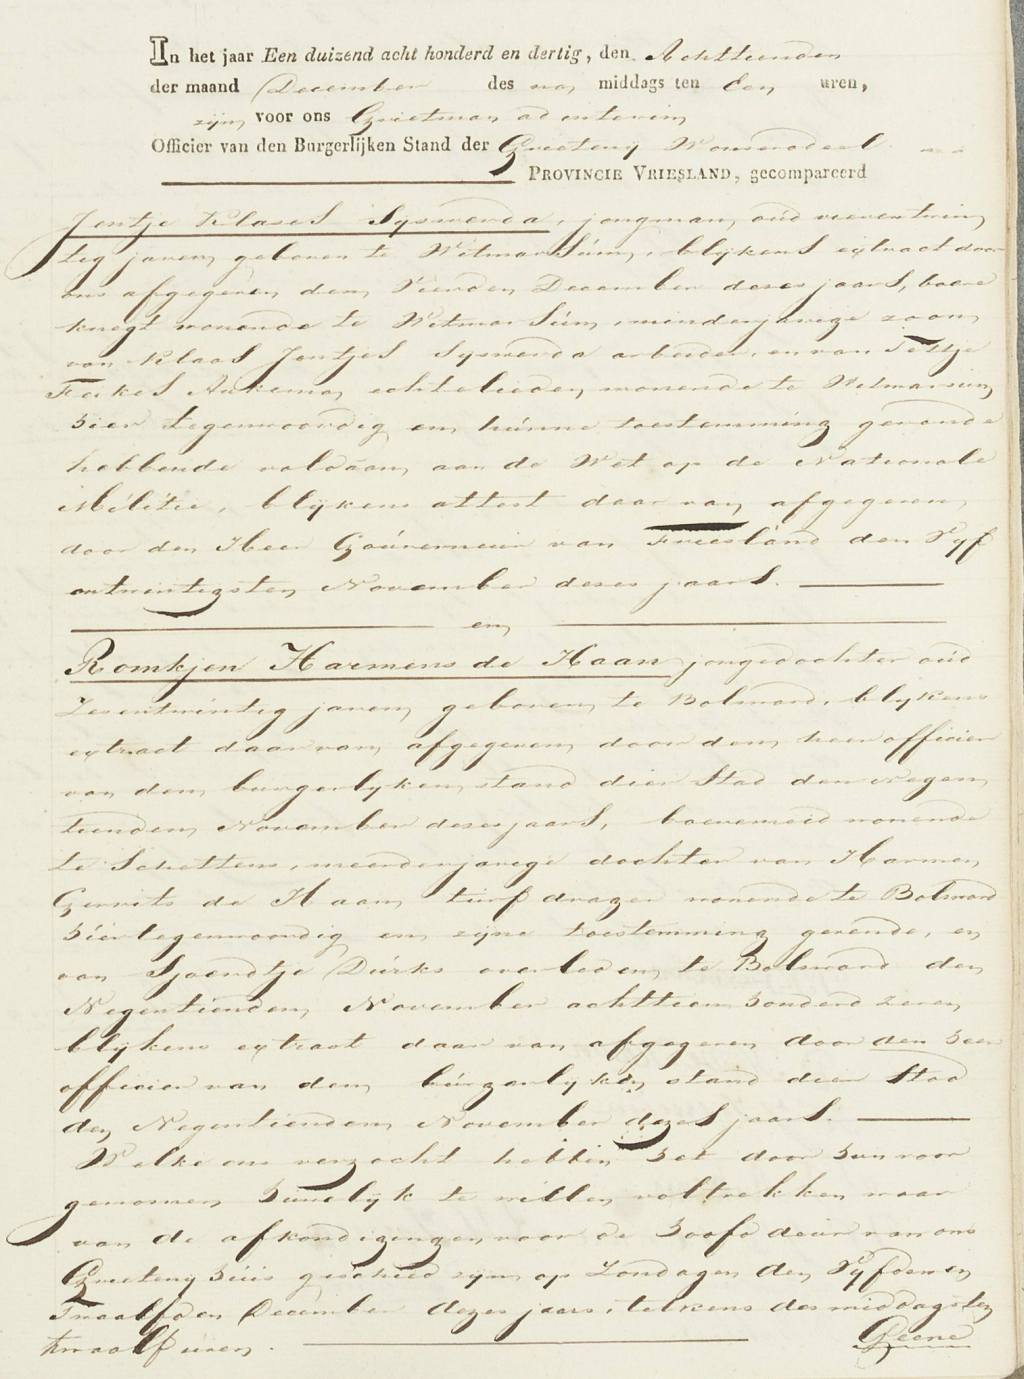 In het jaar Een duizend acht honderd en dertig, den Achttienden
der maand December des na middags ten Een uren,
zijn voor ons Grietman ad interim
Officier van den Burgerlijken Stand der Grieteny Wonseradeel
PROVINCIE VRIESLAND, gecompareerd
Jentje Klases Syswerda, jongman, oud vierentwin
tig jaren, geboren te Witmarsúm, blykens extract door
ons afgegeven den Vierden December dezes jaars, boere
knegt wonende te Witmarsúm, minderjarige zoon
van Klaas Jentjes Syswerda arbeider, en van Tettje
Feikes Aukema, echtelieden wonende te Witmarsum
hier tegenwoordig en húnne toestemming gevende
hebbende voldaan, aan de Wet op de Nationale
Militie, blykens attest daar van afgegeven
door den Heer Goúverneur van Friesland den Vyf
entwintigsten November dezes jaars.
en
Romkjen Harmens de Haan jongedochter oúd
Zesentwintig jaren, geboren te Bolsward, blykens
extract daar van, afgegeven door den heer officier
van den burgerlyken stand dier Stad den Negen
tienden November dezes jaars, boeremeid wonende
te Schettens, meerderjarige dochter van Harmen
Gerrits de Haan, turfdrager wonende te Bolsward
hier tegenwoordig en zyne toestemming gevende, en
van Sjoerdtje Dúrks overleden te Bolsward den
Negentienden November achttien honderd zeven
blykens extract daar van afgegeven door den heer
officier van den búrgerlyken stand dier Stad
den Negentienden November dezes jaars.
Welke ons verzocht hebben het door hun voor
genomen huwelyk te willen voltrekken waar
van de afkondigingen voor de hoofd deur van ons
Grieteny húis geschied zyn op Zondagen den Vyfden en
Twaalfden December dezes jaars, telkens des middags ten
twaalf uren.
Geene